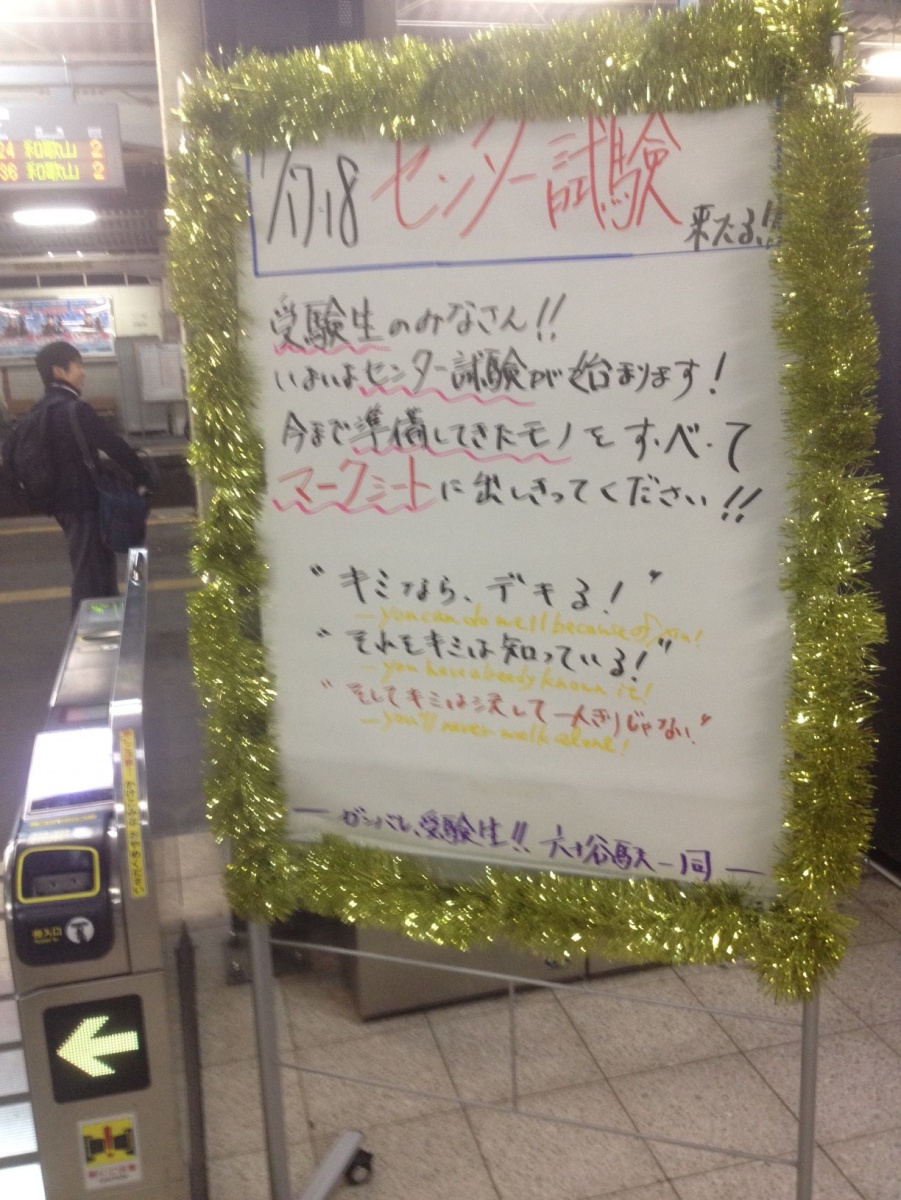 24 和歌山 2
36 和歌山 2
1/17.18 センター試験 来たる!!
受験生のみなさん!!
いよいよセンター試験が始まります!
今まで準備してきたモノをす・べ・て
マークシートに出しきってください!!
"キミなら、デキる!"
— you can do well because of you!
"それをキミは知っている!"
— you have already known it!
"そしてキミは決して一人きりじゃない"
— you'll never walk alone!
— ガンバレ、受験生!! 六十谷駅一同 —